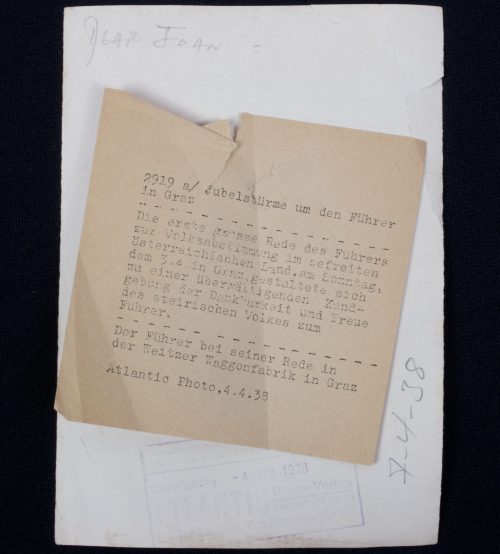 Dear Joan :
2919 a/ Jubelstürme um den Führer
in Graz
- - - - - - - - - - - - - - - -
Die erste grosse Rede des Führers
zur Volksabstimmung im befreiten
Österreichischen Land, am Sonntag,
dem 3.4 in Graz, gestaltete sich
zu einer überwältigenden Kund-
gebung der Dankbarkeit und Treue
des steirischen Volkes zum
Führer.
- - - - - - - - - - - - - - - -
Der Führer bei seiner Rede in
der Weitzer Waggonfabrik in Graz
Atlantic Photo,4.4.38
7-4-38
Copyright by -4. APR. 1938
ATLANTIC
Photo-Verlag